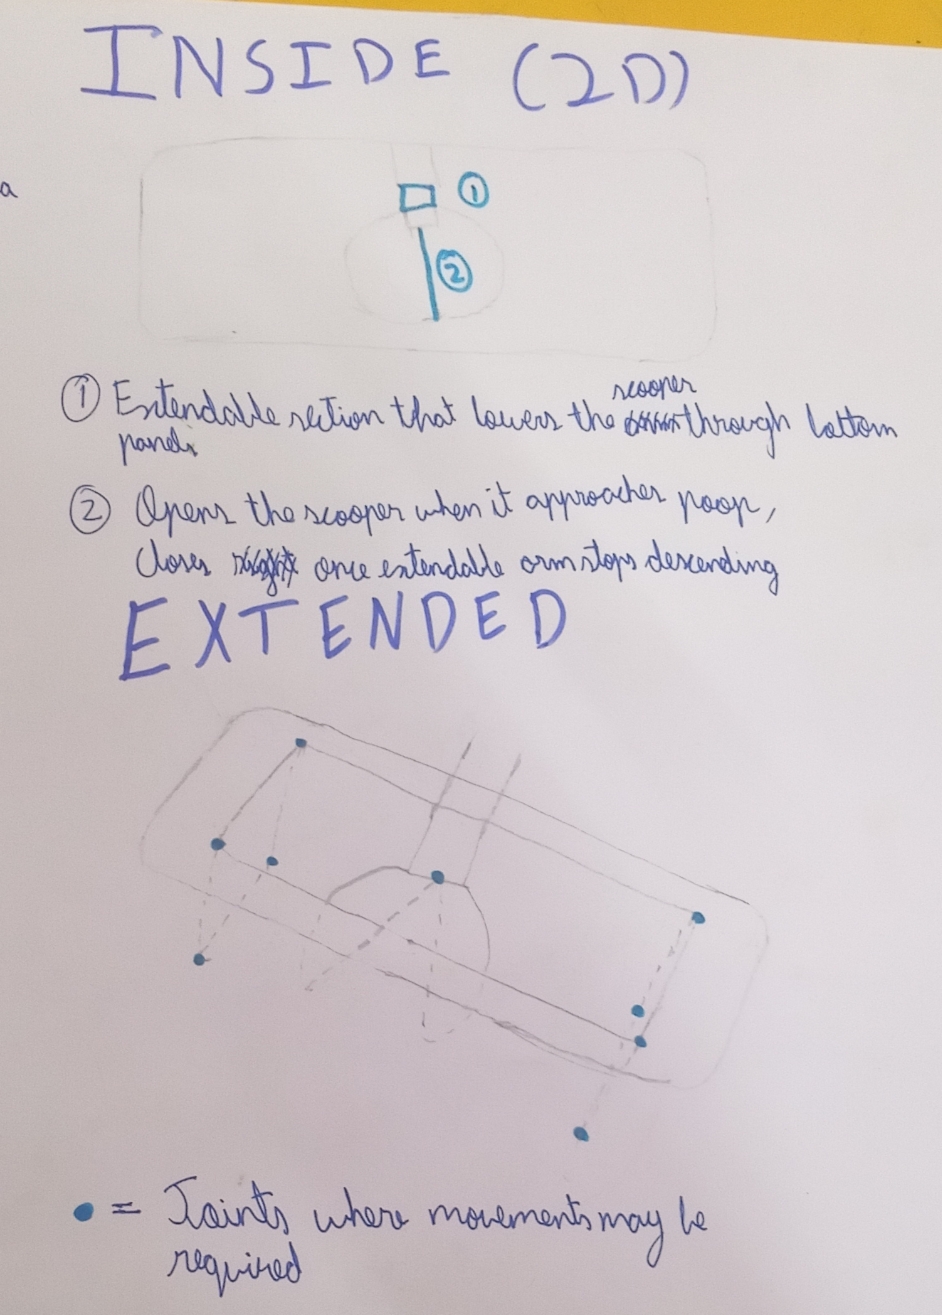 INSIDE (2D)
a
①
②
① Extendable section that lowers the scooper through bottom
panels
② Opens the scooper when it approaches poop,
closes once extendable arm stops descending
EXTENDED
• = Joints where movements may be
required